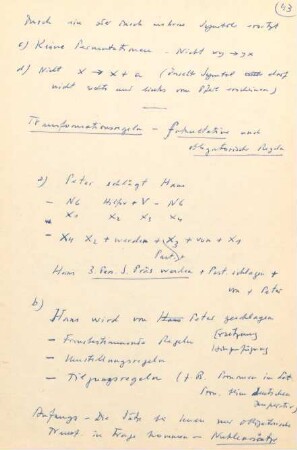 (43)
Durch ein oder durch mehrere Symbole ersetzt
c) Keine Permutationen - Nicht xy → yx
d) Nicht X → X + a (Dasselbe Symbol darf
nicht rechts und links vom Pfeil erscheinen)
Transformationsregeln - fakultative und
obligatorische Regeln
a) Peter schlägt Hans
- NG Hilfsv + V - NG
- X1 X2 X3 X4
- X4 X2 + werden + X3 + von + X1
Part
Hans 3. Pers. S. Präs werden + Part schlagen +
von + Peter
b) Hans wird von Peter geschlagen
- Regeln Ersetzung
- Umstellungsregeln
- Tilgungsregeln (z.B. Pronomen im
deutschen
Imperativ)
Anfangs - Die Sätze bei denen nur obligatorische
Transf. in Frage kommen - Nukleussätze